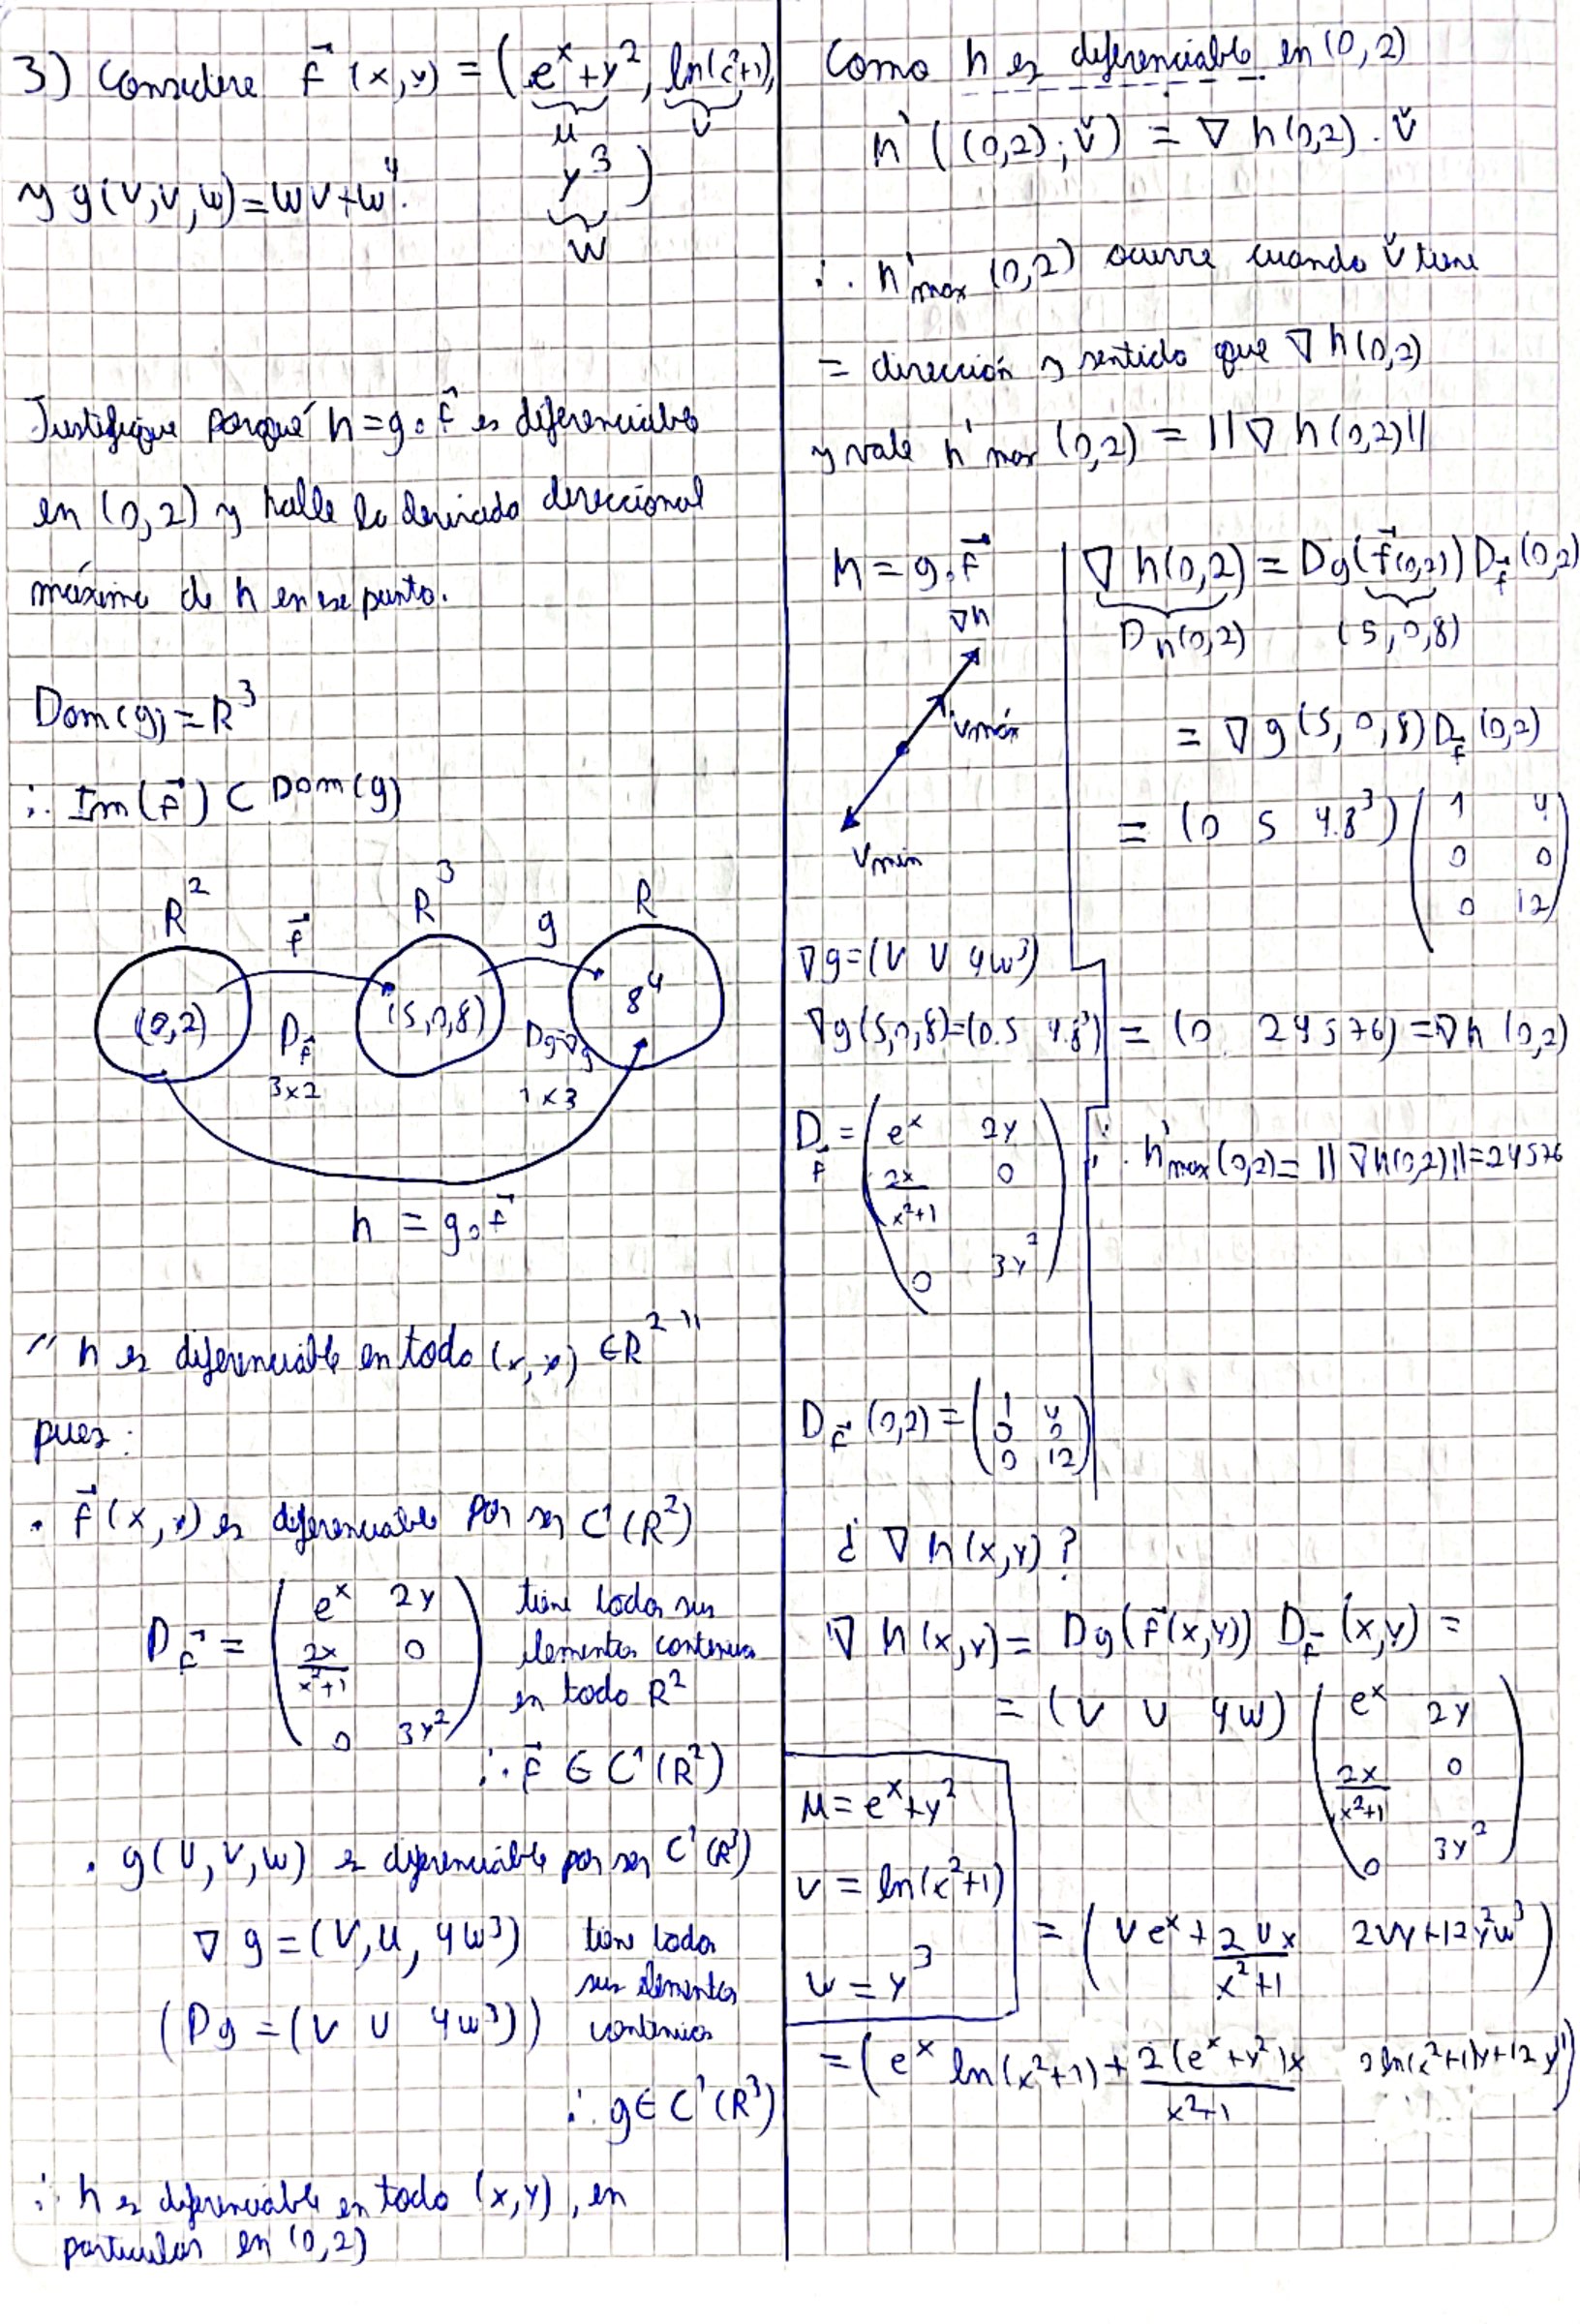 3) Considere f⃗ (x,y) = (e^x+y^2, ln(x^2+1),
u v
y^3)
w
y g(u,v,w)=uv+w^4.
Justifique porqué h=g∘f⃗ es diferenciable
en (0,2) y halle la derivada direccional
máxima de h en ese punto.
Dom(g)=R^3
∴ Im(f⃗) ⊂ Dom(g)
R^2 R^3 R
f⃗ g
(0,2) (5,0,8) 8^4
D_f⃗ Dg=∇g
3x2 1x3
h = g∘f⃗
"h es diferenciable en todo (x,y) ∈R^2"
pues:
• f⃗(x,y) es diferenciable por ser C^1(R^2)
D_f⃗ = ( e^x 2y tiene todos sus
2x/(x^2+1) 0 elementos continuos
en todo R^2
0 3y^2 )
∴ f⃗ ∈ C^1(R^2)
• g(u,v,w) es diferenciable por ser C^1(R^3)
∇g=(v,u,4w^3) tiene todos
sus elementos
(Dg=(v u 4w^3)) continuos
∴ g∈C^1(R^3)
∴ h es diferenciable en todo (x,y), en
particular en (0,2)
Como h es diferenciable en (0,2)
h'((0,2);v̌) = ∇h(0,2).v̌
∴ h'max(0,2) ocurre cuando v̌ tiene
= dirección y sentido que ∇h(0,2)
y vale h'max(0,2)=||∇h(0,2)||
h=g∘f⃗
∇h
vmáx
vmín
∇h(0,2)=Dg(f⃗(0,2))D_f⃗(0,2)
Dh(0,2) (5,0,8)
= ∇g(5,0,8)D_f⃗(0,2)
= (0 5 4.8^3) ( 1 4
0 0
0 12 )
∇g=(v u 4w^3)
∇g(5,0,8)=(0.5 4.8^3) = (0 24576)=∇h(0,2)
D_f⃗ = ( e^x 2y
2x/(x^2+1) 0
0 3y^2 )
∴ h'max(0,2)=||∇h(0,2)||=24576
D_f⃗(0,2)= ( 1 4
0 0
0 12 )
¿∇h(x,y)?
∇h(x,y)=Dg(f⃗(x,y)) D_f⃗(x,y) =
= (v u 4w) ( e^x 2y
2x/(x^2+1) 0
0 3y^2 )
u=e^x+y^2
v=ln(x^2+1)
w=y^3
= (ve^x+2ux/(x^2+1) 2vy+12y^2w^3)
=(e^x ln(x^2+1)+2(e^x+y^2)x/(x^2+1) 2ln(x^2+1)y+12y^11)